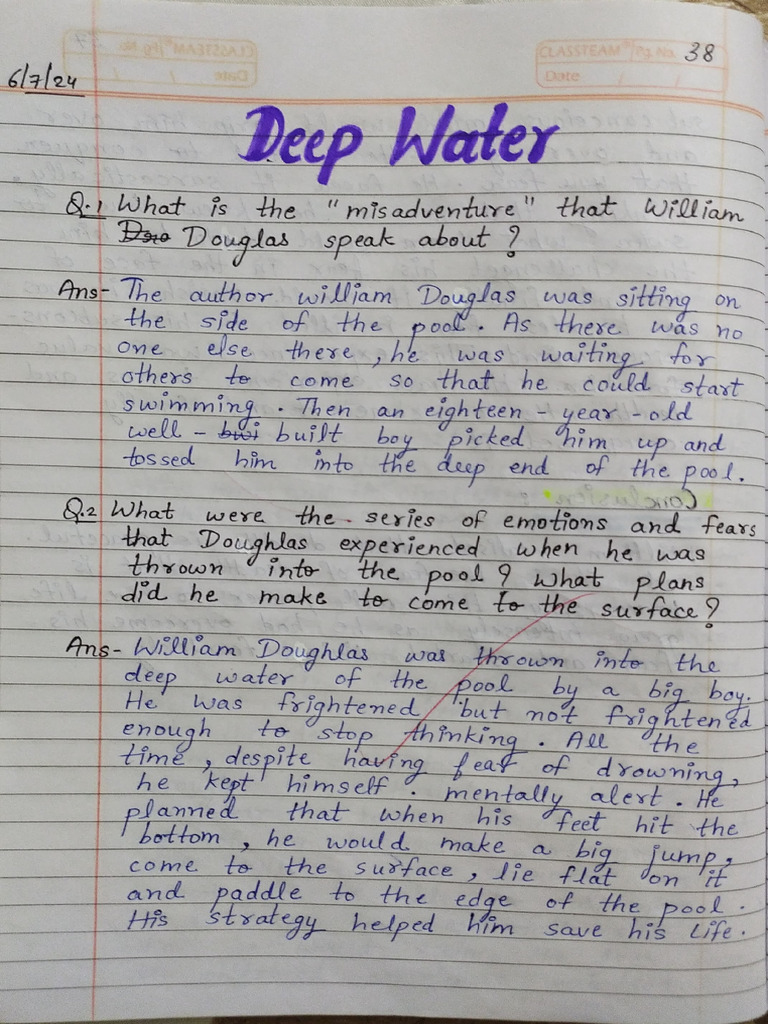 CLASSTEAM Pg. No. 38
Date / /
6/7/24
Deep Water
Q.1 What is the "misadventure" that William
Douglas speak about ?
Ans- The author william Douglas was sitting on
the side of the pool. As there was no
one else there, he was waiting for
others to come so that he could start
swimming. Then an eighteen-year-old
well- built boy picked him up and
tossed him into the deep end of the pool.
Conclusion:
Q.2 What were the series of emotions and fears
that Doughlas experienced when he was
thrown into the pool ? What plans
did he make to come to the surface?
Ans- William Doughlas was thrown into the
deep water of the pool by a big boy.
He was frightened but not frightened
enough to stop thinking. All the
time, despite having fear of drowning,
he kept himself mentally alert. He
planned that when his feet hit the
bottom, he would make a big jump,
come to the surface, lie flat on it
and paddle to the edge of the pool.
His strategy helped him save his life.